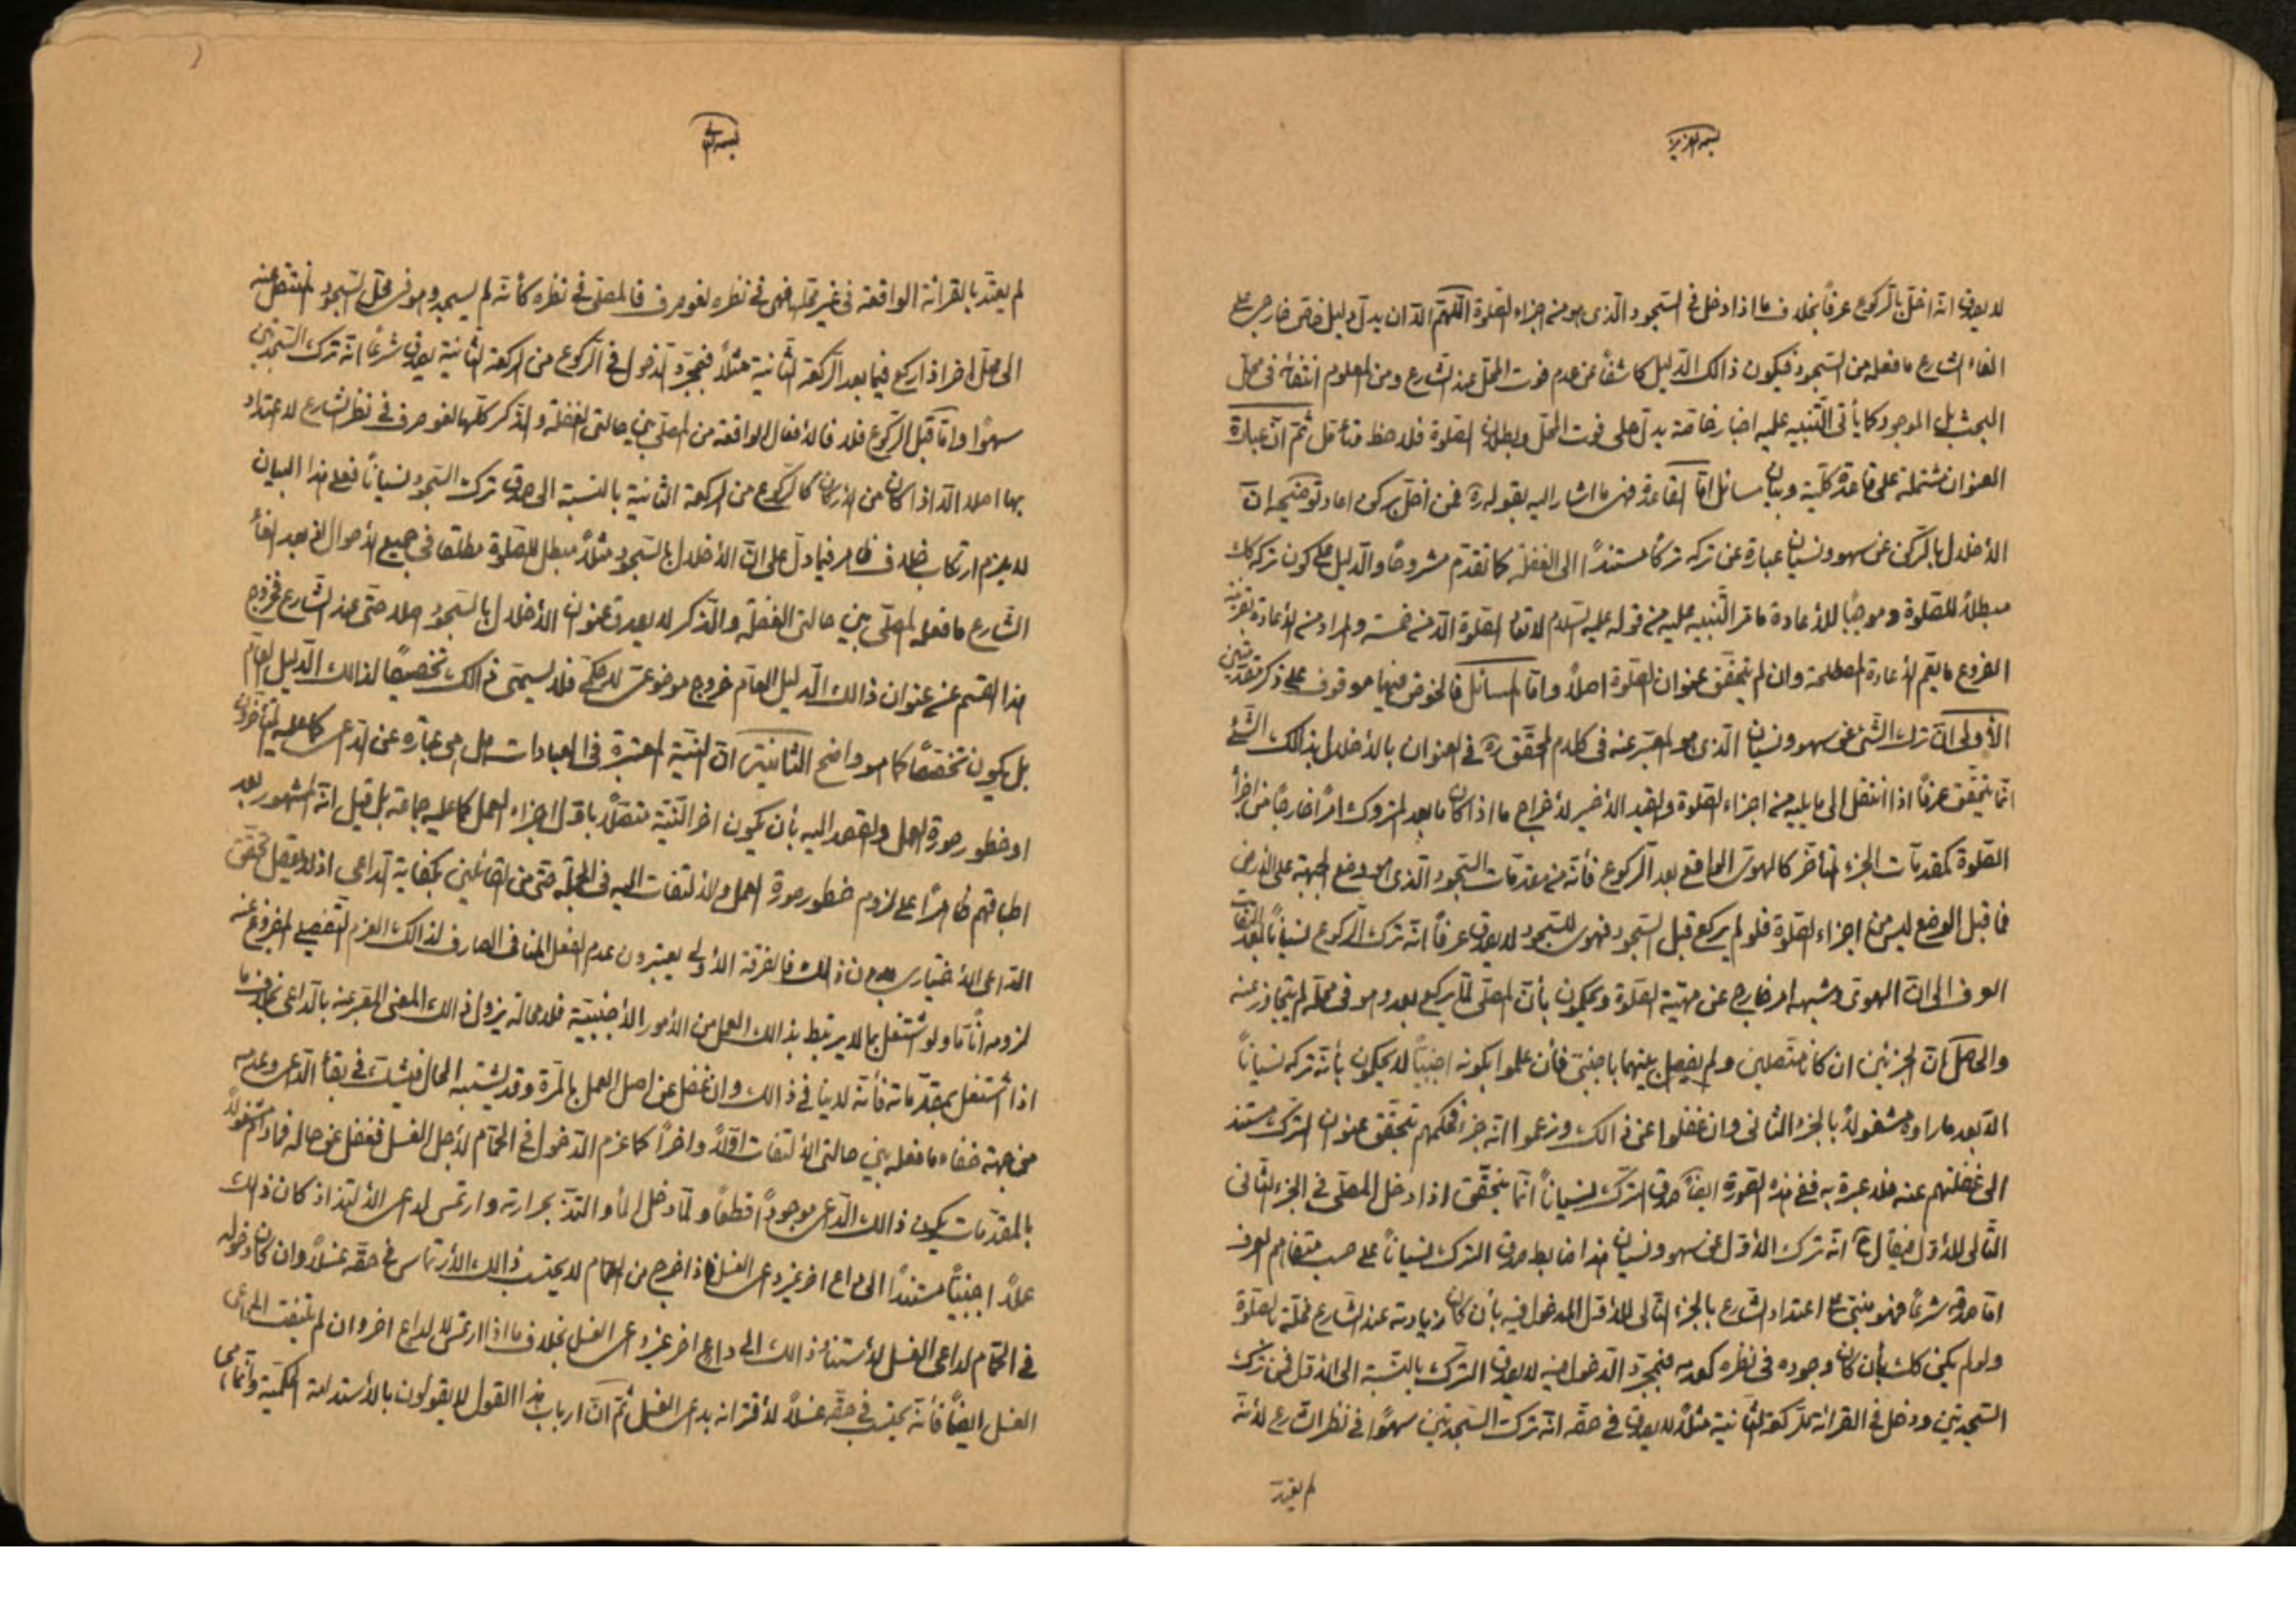 بسمه العزيز
لا يصدق انه اخلّ بالرّكوع عرفاً بخلاف ما اذا دخل فى السّجود الّذى هو من اجزاء الصّلوة اللّهمّ الّا ان يدلّ دليل خاصّ خارجى على
الغاء الشارع ما فعله من السّجود فيكون ذالك الدّليل كاشفاً عن عدم فوت المحلّ عند الشارع ومن المعلوم انتفائه فى محلّ
البحث بل الموجود كما يأتى التّنبيه عليه اخبار خاصّة يدلّ على فوت المحلّ وبطلان الصّلوة فلاحظ وتأمّل ثمّ انّ عبارة
العنوان مشتملة على قاعدة كلّية وبيان مسائل امّا القاعدة فهى ما اشار اليه بقوله ره فمن اخلّ بركن اعاد توضيحه انّ
الأخلال بالرّكن عن سهو ونسيان عبارة عن تركه تركاً مستنداً الى الغفلة كما تقدّم مشروحاً والدّليل على كون تركه كك
مبطلاً للصّلوة وموجباً للأعادة ما مرّ التّنبيه عليه من قوله عليه السّلام لا تعاد الصّلوة الّا من خمسة والمراد من الأعادة بقرينة
الفروع ما يعمّ الأعادة المصطلحة وان لم يتحقّق عنوان الصّلوة اصلاً وامّا المسائل فالخوض فيها موقوف على ذكر مقدّمتين
الأولى انّ ترك الشّئ عن سهو ونسيان الّذى هو المعبّر عنه فى كلام المحقّق ره فى العنوان بالأخلال بذالك الشّئ
انّما يتحقّق عرفاً اذا انتقل الى ما يليه من اجزاء الصّلوة والقيد الأخير لأخراج ما اذا كان ما بعد المتروك امراً خارجاً من اجزأ
الصّلوة كمقدمات الجزء المتأخّر كالهوىّ الواقع بعد الرّكوع فأنّه من مقدّمات السّجود الّذى هو وضع الجبهة على الأرض
فما قبل الوضع ليس من اجزاء الصّلوة فلو لم يركع قبل السّجود فهوى للسّجود لا يصدق عرفاً انّه ترك الرّكوع نسياناً بعد التفات
العرف الى انّ الهوىّ وشبهه امر خارج عن مهيّة الصّلوة ويحكمون بأنّ المصلّى لمّا يركع بعد وهو فى محلّه لم يتجاوز عنه
والحاصل انّ الجزئين ان كانا متّصلين ولم يفصل بينهما باجنبى فأن علموا بكونه اجنبيّاً لا يحكمون بأنّه تركه نسياناً
الّا بعد ما راوه مشغولاً بالجزء الثانى وان غفلوا عن ذالك وزعموا انّه جزء فحكمهم بتحقّق عنوان الترك مستند
الى غفلتهم عنه فلا عبرة به ففى هذه الصّورة ايضاً صدق الترك نسياناً انّما يتحقّق اذا دخل المصلّى فى الجزء الثّانى
التّالى للأوّل فيقال ح انّه ترك الأوّل عن سهو ونسيان هذا ضابط صدق الترك نسياناً على حسب متفاهم العرف
امّا صدقه شرعاً فهو مبنىّ على اعتداد الشارع بالجزء التّالى للأوّل المدخول فيه بأن كان زيادته عند الشّارع مخلّة بالصّلوة
ولو لم يكن كك بأن كان وجوده فى نظره كعدمه فبمجرّد الدّخول فيه لا يصدق الترك بالنّسبة الى الأوّل فمن ترك
السّجدتين ودخل فى القرائة للرّكعة الثّانية مثلاً لا يصدق فى حقّه انّه ترك السّجدتين سهواً فى نظر الشارع لأنّه
لم يعتدّ
بسمه تعالى
لم يعتدّ بالقرائة الواقعة فى غير محلّه فهى فى نظره لغو صرف فالمصلّى فى نظره كأنّه لم يسجد وهو فى محلّ السّجود لم ينتقل عنه
الى محلّ اخر اذا ركع فيما بعد الرّكعة الثّانية مثلاً فبمجرّد الدّخول فى الرّكوع من الركعة الثّانية يصدق شرعاً انّه ترك السّجدتين
سهواً وامّا قبل الرّكوع فلا فالأفعال الواقعة من المصلّى بين حالتى الغفلة والذّكر كلّها لغو صرف فى نظر الشارع لا اعتداد
بها اصلا الّا اذا كان من الأركان كالرّكوع من الركعة الثّانية بالنّسبة الى صدق ترك السّجود نسياناً فعلى هذا البيان
لا يلزم ارتكاب خلاف ظاهر فيما دلّ على انّ الأخلال بالسّجود مثلاً مبطل للصّلوة مطلقا فى جميع الأحوال اذ بعد الغأ
الشّارع ما فعله المصلّى بين حالتى الغفلة والذّكر لا يصدق عنوان الأخلال بالسّجود اصلا حتّى عند الشّارع فخروج
هذا القسم عن عنوان ذالك الدّليل العامّ خروج موضوعى لا حكمّى فلا يسمّى ذالك تخصيصاً لذالك الدّليل العامّ
بل يكون تخصّصاً كما هو واضح الثّانية انّ النّيّة المعتبرة فى العبادات هل هى عبارة عن الدّاعى كما عليه المتأخّرون
او خطور صورة العمل والقصد اليه بأن يكون اخر النّيّة متّصلاً باوّل اجزاء العمل كما عليه جماعة بل قيل انّه المشهور بعد
اطباقهم ظاهراً على لزوم خطور صورة العمل والألتفات اليه فى الجملة حتّى من القائلين بكفاية الدّاعى اذ لا يعقل تحقّق
الدّاعى الأختيارى بدون ذالك فالفرقة الأولى يعتبرون عدم الفعل المنافى الصارف لذالك العزم التّفصيلى المفروغ عنه
لزومه انّاً ما ولو اشتغل بما لا يرتبط بذالك العمل من الأمور الأجنبيّة فلا محالة يزول ذالك المعنى المعّبر عنه بالدّاعى بخلاف ما
اذا اشتغل بمقدّماته فأنّه لا ينافى ذالك وان غفل عن اصل العمل بالمرّة وقد يشتبه الحال فيشكّ فى بقأ الدّاعى وعدمه
من جهة خفاء ما فعله بين حالتى الألتفات اوّلاً واخراً كما عزم الدّخول فى الحمّام لأجل الغسل فغفل عن حاله فما دام مشغولاً
بالمقدّمات يكون ذالك الدّاعى موجوداً قطعاً ولمّا دخل المأ والتذّ بحرارته وارتمس لداعى الألتذاذ كان ذالك
عملاً اجنبيّاً مستنداً الى داع اخر غير داعى الغسل فاذا خرج من الحمّام لا يحتسب ذالك الأرتماس فى حقّه غسلاً وان كان دخوله
فى الحمّام لداعى الغسل لأستناد ذالك الى داع اخر غير داعى الغسل بخلاف ما اذا ارتمس لا لداع اخر وان لم يلتفت الى داعى
الغسل ايضاً فأنّه يحتسب فى حقّه غسلاً لأقترانه بداعى الغسل ثمّ انّ ارباب هذا القول لا يقولون بالأستدامة الحكميّة وانّما هى